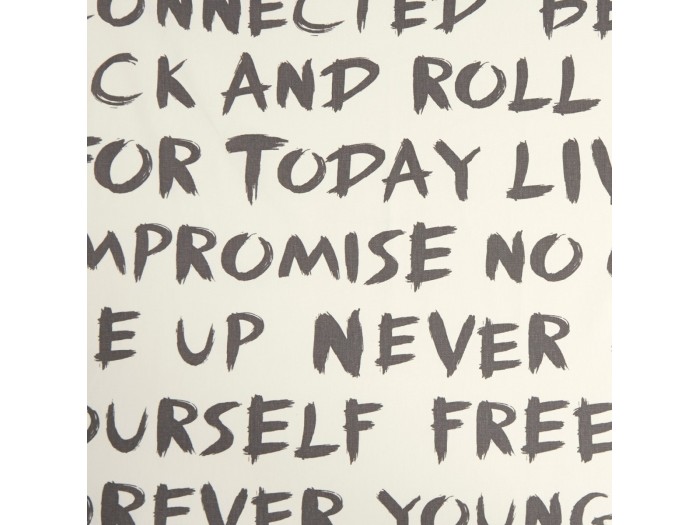 CONNECTED BE
CK AND ROLL
FOR TODAY LIV
MPROMISE NO
E UP NEVER
OURSELF FREE
OREVER YOUNG